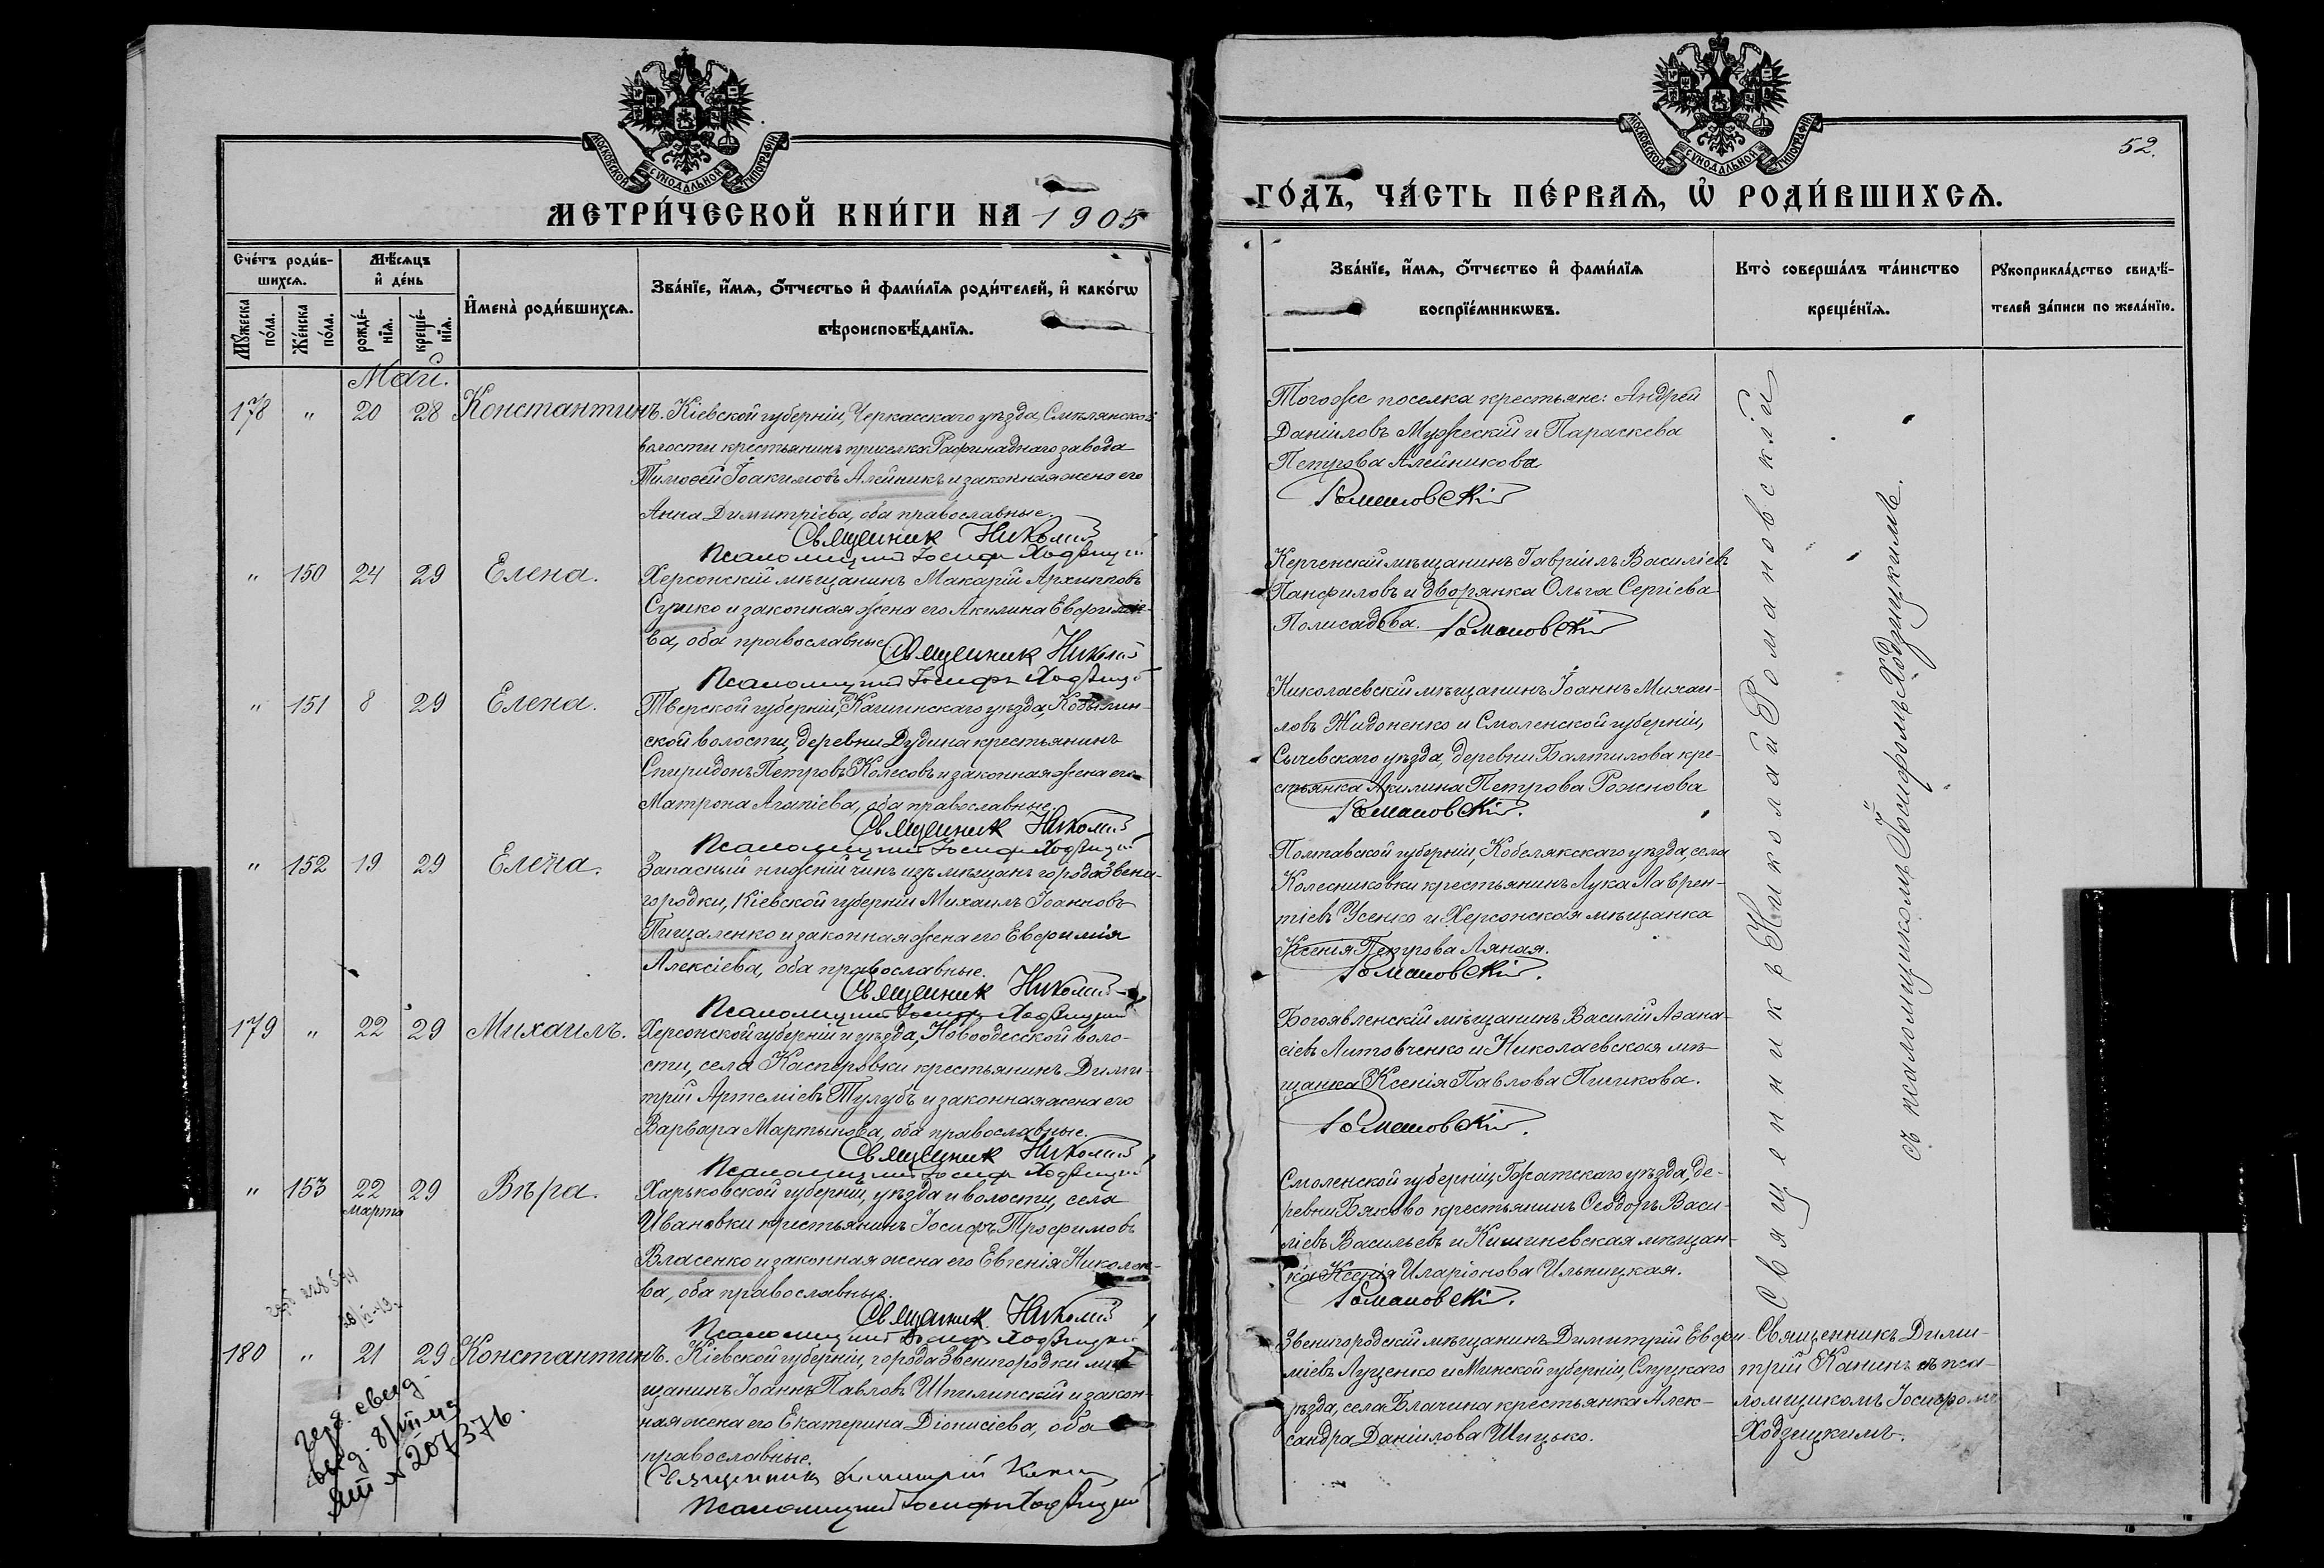 МОСКОВСКОЙ СѴНОДАЛЬНОЙ ТИПОГРАФІИ
МЕТРИ́ЧЕСКОЙ КНИ́ГИ НА 1905
Сче́тъ роди́в-
шихсѧ.
Мѣ́сѧцъ
и҆ де́нь
Мꙋ́жеска
по́ла.
Же́нска
по́ла.
рожде́-
нїѧ.
креще́-
нїѧ.
И҆мена̀ роди́вшихсѧ.
Зва́нїе, и҆́мѧ, ѻ҆́тчество и҆ фами́лїѧ роди́телей, и҆ како́гѡ
вѣроисповѣ́данїѧ.
Май.
178 " 20 28 Константинъ. Кіевской губерніи, Черкасскаго уѣзда, Смѣлянской
волости крестьянинъ приселка Рафинаднаго завода
Тимоѳей Іоакимовъ Алейникъ и законная жена его
Анна Димитріева, оба православные.
Священник Николай
Псаломщикъ Іосифъ Ходзицкій
" 150 24 29 Елена. Херсонскій мѣщанинъ Макарій Архипковъ
и законная жена его Акилина Евфиміе-
ва, оба православные
Священник Николай
Псаломщикъ Іосифъ Ходзицкій
" 151 8 29 Елена. Тверской губерніи, Кашинскаго уѣзда,
ской волости, деревни Дудина крестьянинъ
Спиридонъ Петровъ Колесовъ и законная жена его
Матрона Агапіева, оба православные.
Священник Николай
Псаломщикъ Іосифъ Ходзицкій
" 152 19 29 Елена. Запасный нижній чинъ изъ мѣщанъ города Звени-
городки, Кіевской губерніи Михаилъ Іоанновъ
Пищаленко и законная жена его Евфимія
Алексіева, оба православные.
Священник Николай
Псаломщикъ Іосифъ Ходзицкій
179 " 22 29 Михаилъ. Херсонской губерніи и уѣзда, Новоодесской воло-
сти, села Касперовки крестьянинъ Дими-
трій Артеміевъ Тулубъ и законная жена его
Варвара Мартынова, оба православные.
Священник Николай
Псаломщикъ Іосифъ Ходзицкій
" 153 22 29 Вѣра. Харьковской губерніи, уѣзда и волости, села
марта
Ивановки крестьянинъ Іосифъ Трофимовъ
Власенко и законная жена его Евгенія Николае-
ва, оба православные.
Священник Николай
Псаломщикъ Іосифъ Ходзицкій
180 " 21 29 Константинъ. Кіевской губерніи, города Звенигородки мѣ-
щанинъ Іоаннъ Павловъ Шпилинскій и закон-
ная жена его Екатерина Діонисіева, оба
православные.
Священникъ Димитрій Канин
Псаломщикъ Іосифъ Ходзицкій
герб. свед.
выд. 8/III-
№ 207376.
МОСКОВСКОЙ СѴНОДАЛЬНОЙ ТИПОГРАФІИ
52.
ГО́ДЪ, ЧА́СТЬ ПЕ́РВАѦ, Ѡ҆ РОДИ́ВШИХСѦ.
Зва́нїе, и҆́мѧ, ѻ҆́тчество и҆ фами́лїѧ
воспрїе́мникѡвъ.
Кто̀ соверша́лъ та́инство
креще́нїѧ.
Рꙋкоприкла́дство свидѣ́-
телей за́писи по жела́нїю.
Тогоже поселка крестьяне: Андрей
Даніиловъ Мужескій и Параскева
Петрова Алейникова
Романовскій
Керченскій мѣщанинъ Гавріилъ Василіевъ
Панфиловъ и дворянка Ольга Сергіева
Полисадова. Романовскій
Николаевскій мѣщанинъ Іоаннъ Михаи-
ловъ Жидоненко и Смоленской губерніи,
Сычевскаго уѣзда, деревни Балтилова кре-
стьянка Акилина Петрова Рожнова
Романовскій.
Полтавской губерніи, Кобелякскаго уѣзда, села
Колесниковки крестьянинъ Лука Лаврен-
тіевъ Усенко и Херсонская мѣщанка
Ксенія Петрова Ляная.
Романовскій.
Богоявленскій мѣщанинъ Василій Аѳана-
сіевъ Литовченко и Николаевская мѣ-
щанка Ксенія Павлова Пшикова.
Романовскій.
Смоленской губерніи, Гжатскаго уѣзда, де-
ревни Бяково крестьянинъ Ѳеодоръ Васи-
ліевъ Васильевъ и Кишиневская мѣщан-
ка Ксенія Иларіонова Ильницкая.
Романовскій.
Звенигородскій мѣщанинъ Димитрій Евфи-
міевъ Луценко и Минской губерніи, Слуцкаго
уѣзда, села Блачина крестьянка Алек-
сандра Даніилова Шицько.
Священникъ Николай Романовскій
съ псаломщикомъ Іосифомъ Ходзицкимъ.
Священникъ Дими-
трій Канинъ съ пса-
ломщикомъ Іосифомъ
Ходзицкимъ.